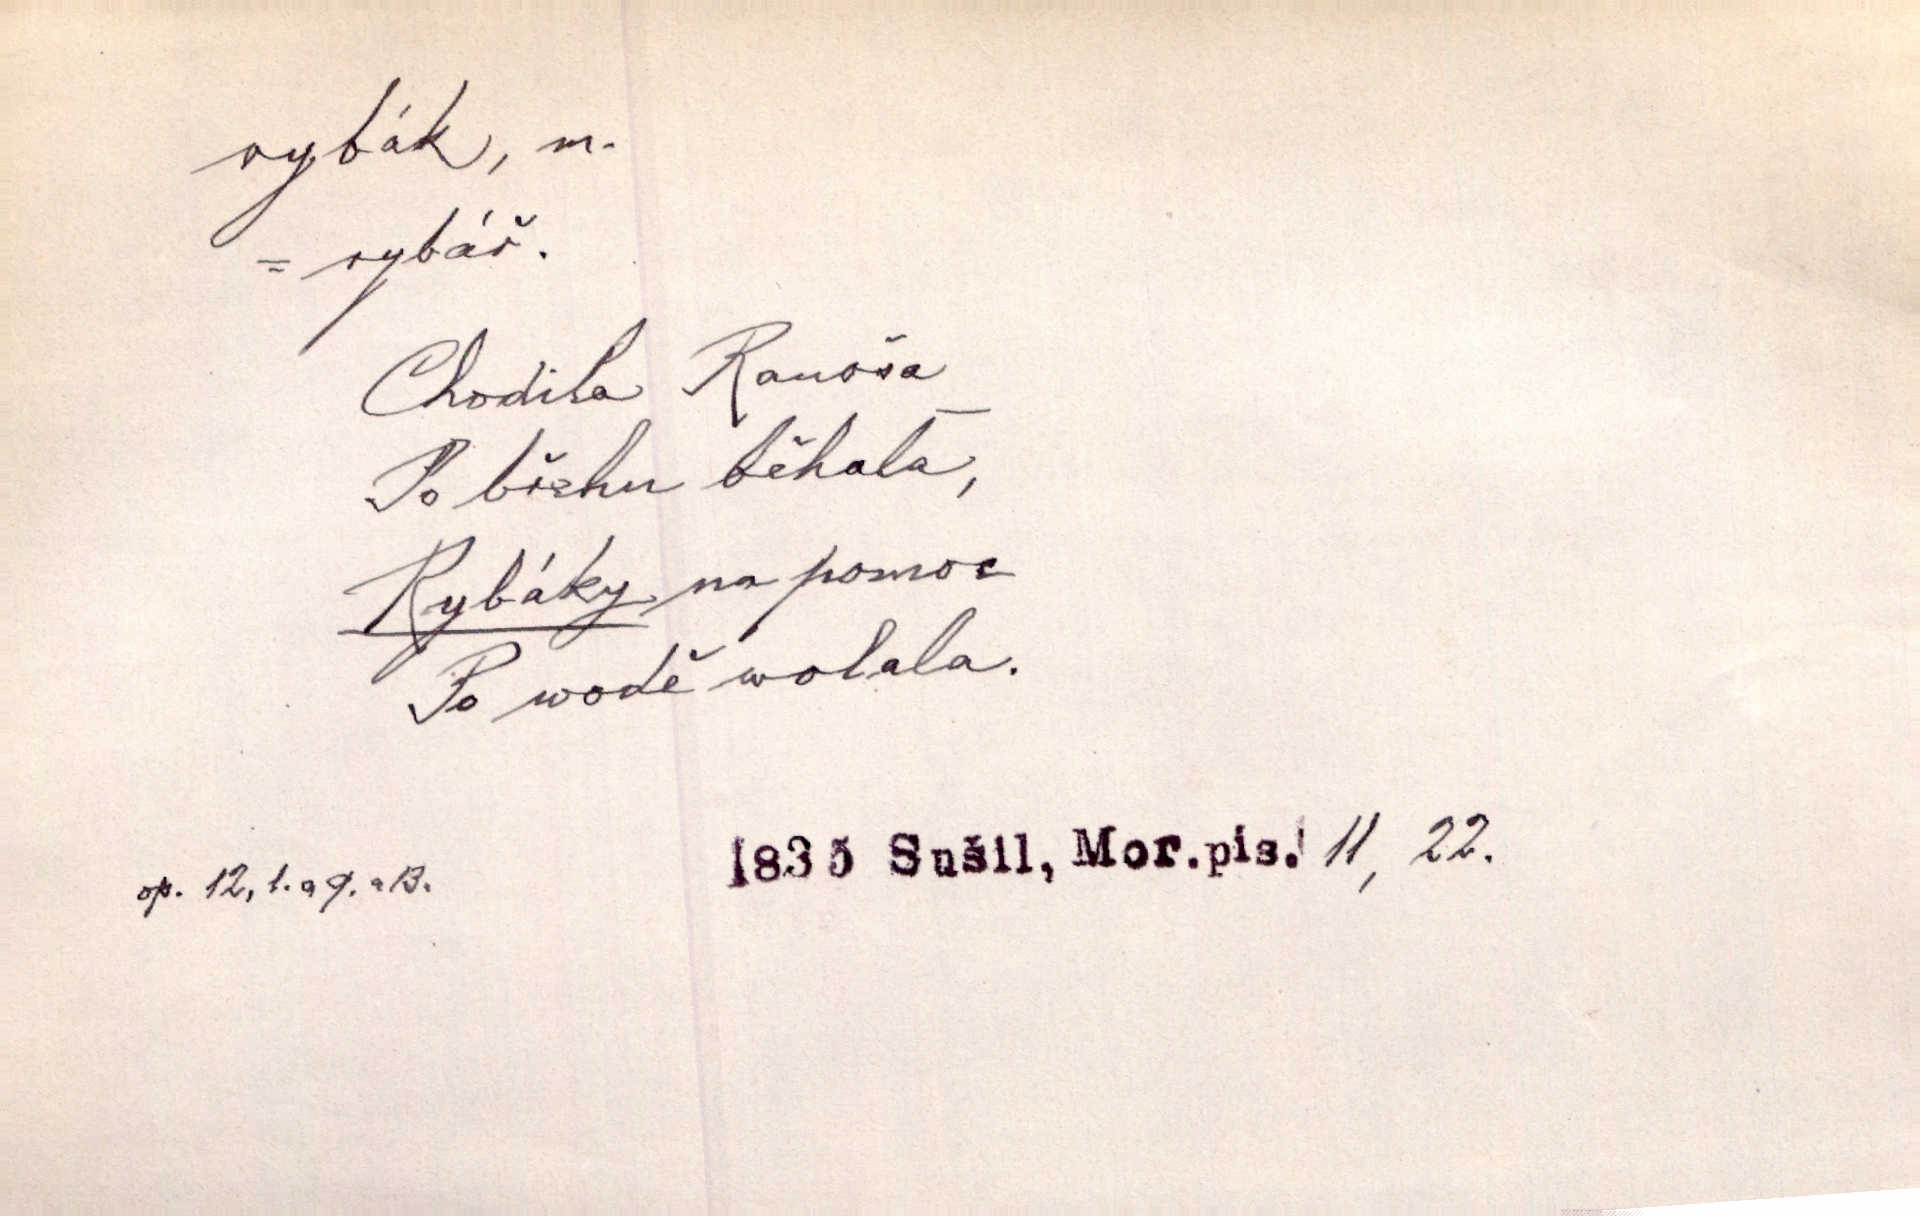 rybák, m.
= rybář.
Chodila Ranoša
Po břehu běhala,
Rybáky na pomoc
Po wodě wolala.
1835 Sušil, Mor.pis. 11, 22.
op. 12, 1. a 9. a 13.